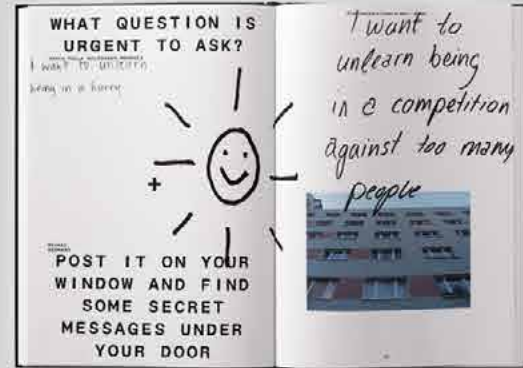 WHAT QUESTION IS
URGENT TO ASK?
I want to unlearn
being in a hurry
+
POST IT ON YOUR
WINDOW AND FIND
SOME SECRET
MESSAGES UNDER
YOUR DOOR
I want to
unlearn being
in a competition
against too many
people